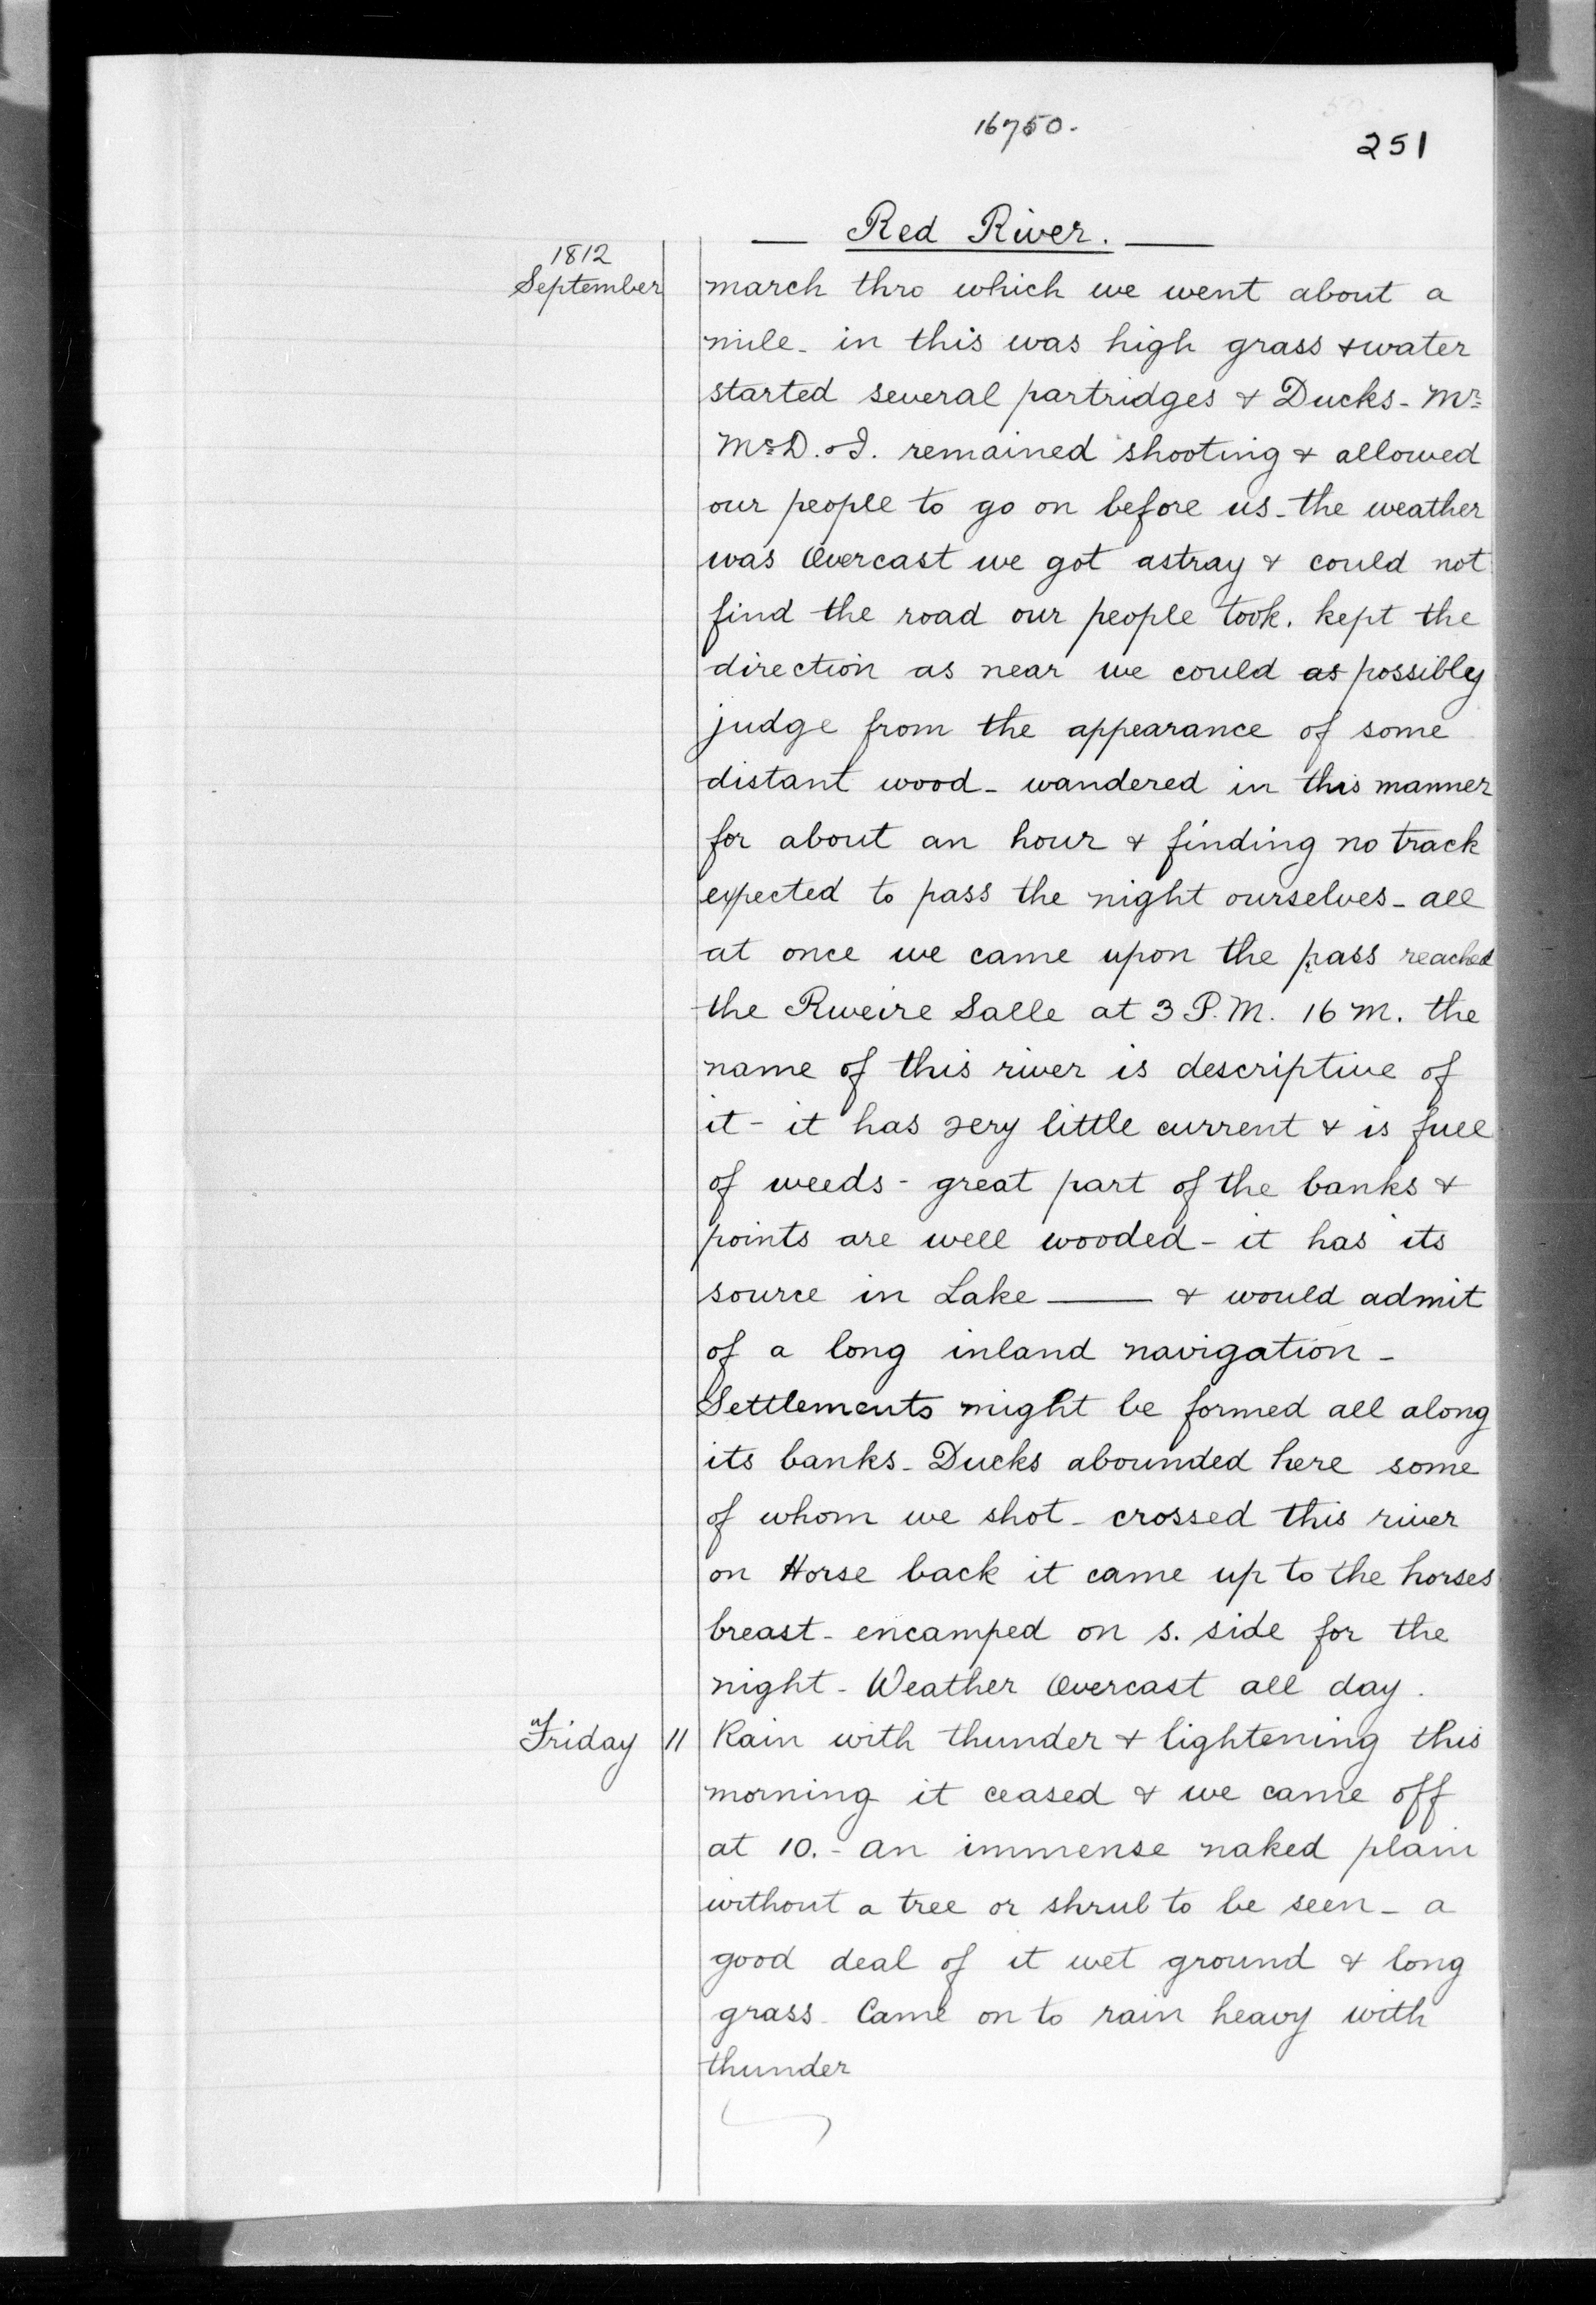 16750.
251
Red River.
1812
September
march thro which we went about a
mile - in this was high grass & water
started several partridges & Ducks - Mr
McD. & I. remained shooting & allowed
our people to go on before us - the weather
was Overcast we got astray & could not
find the road our people took. kept the
direction as near we could as possibly
judge from the appearance of some
distant wood - wandered in this manner
for about an hour & finding no track
expected to pass the night ourselves - all
at once we came upon the pass reached
the Riveire Salle at 3 P.M. 16 M. the
name of this river is descriptive of
it - it has very little current & is full
of weeds - great part of the banks &
points are well wooded - it has its
source in Lake —— & would admit
of a long inland navigation -
Settlements might be formed all along
its banks - Ducks abounded here some
of whom we shot - crossed this river
on Horse back it came up to the horses
breast - encamped on s. side for the
night - Weather Overcast all day.
Friday 11 Rain with thunder & lightening this
morning it ceased & we came off
at 10. - an immense naked plain
without a tree or shrub to be seen - a
good deal of it wet ground & long
grass - Came on to rain heavy with
thunder